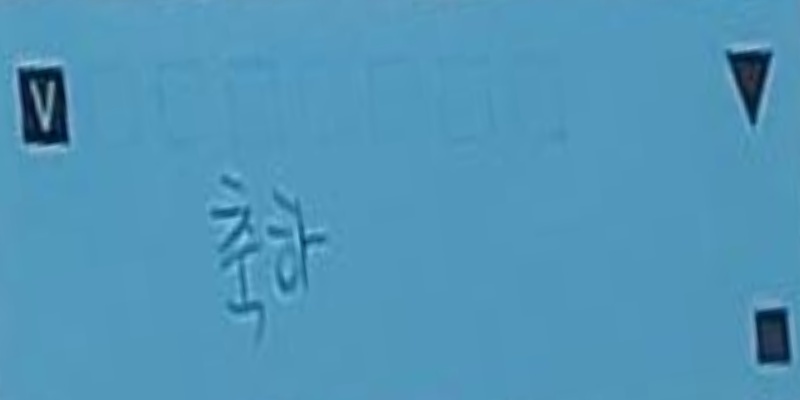 V
축하